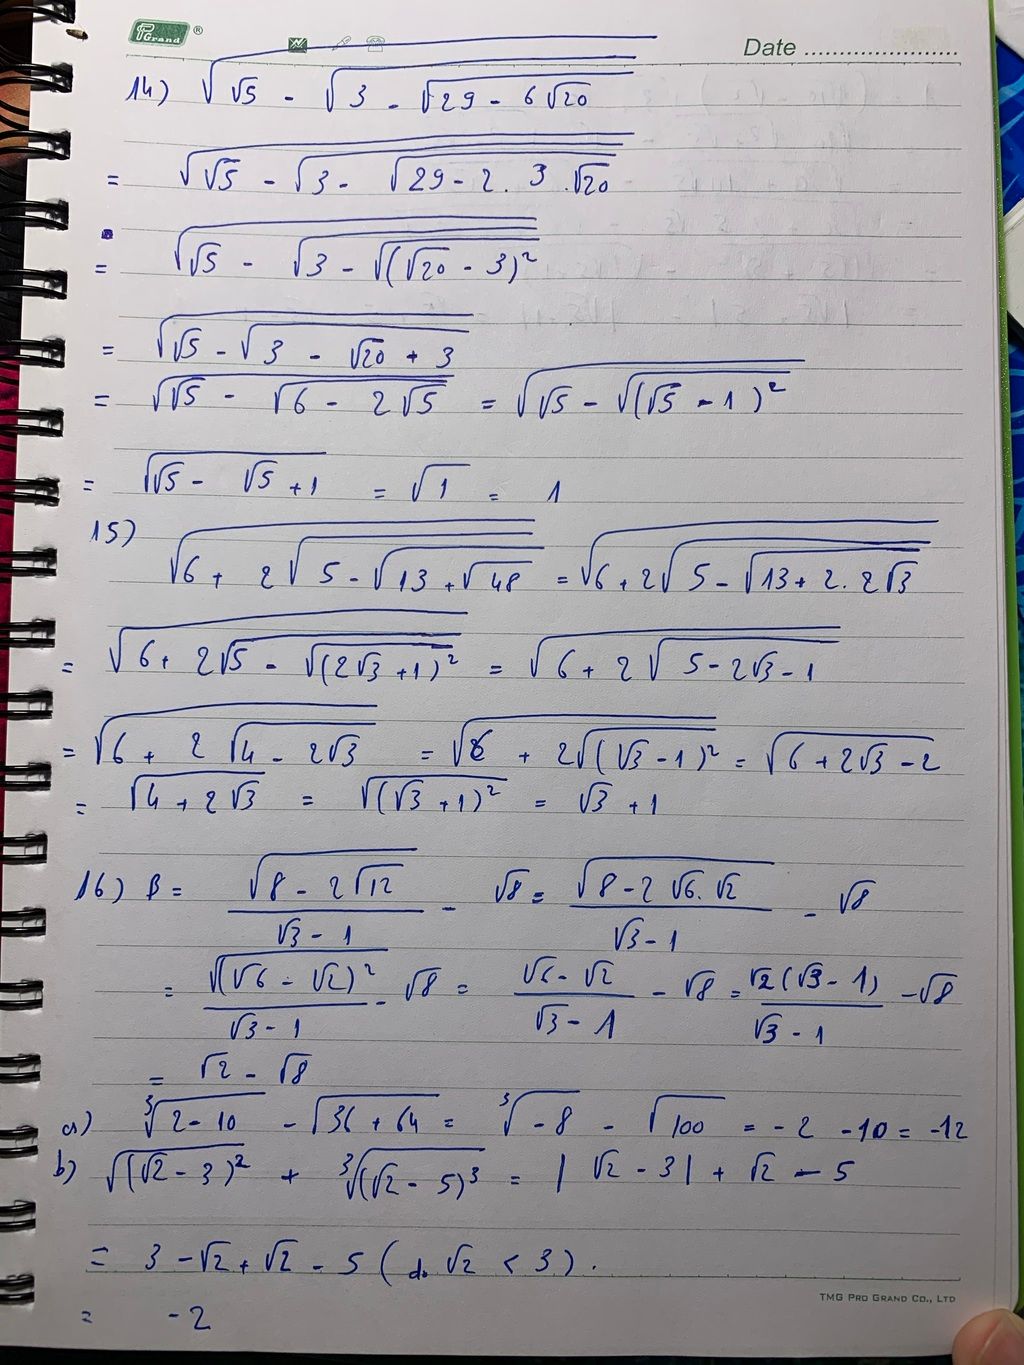 PGrand ®
Date ........................
14) √(√5 - √(3 - √(29 - 6√20)))
= √(√5 - √(3 - √(29 - 2.3.√20)))
= √(√5 - √(3 - √((√20 - 3)²)))
= √(√5 - √(3 - √20 + 3))
= √(√5 - √(6 - 2√5)) = √(√5 - √((√5 - 1)²))
= √(√5 - √5 + 1) = √1 = 1
15)
√(6 + 2√(5 - √(13 + √48))) = √(6 + 2√(5 - √(13 + 2.2√3)))
= √(6 + 2√(5 - √((2√3 + 1)²))) = √(6 + 2√(5 - 2√3 - 1))
= √(6 + 2√(4 - 2√3)) = √(6 + 2√((√3 - 1)²)) = √(6 + 2√3 - 2)
= √(4 + 2√3) = √((√3 + 1)²) = √3 + 1
16) B = √(8 - 2√12)/(√3 - 1) - √8 = √(8 - 2√6.√2)/(√3 - 1) - √8
= √((√6 - √2)²)/(√3 - 1) - √8 = (√6 - √2)/(√3 - 1) - √8 = √2(√3 - 1)/(√3 - 1) - √8
= √2 - √8
a) ∛(2 - 10) - √(36 + 64) = ∛(-8) - √100 = -2 - 10 = -12
b) √((√2 - 3)²) + ∛((√2 - 5)³) = |√2 - 3| + √2 - 5
= 3 - √2 + √2 - 5 (do √2 < 3).
= -2
TMG PRO GRAND CO., LTD